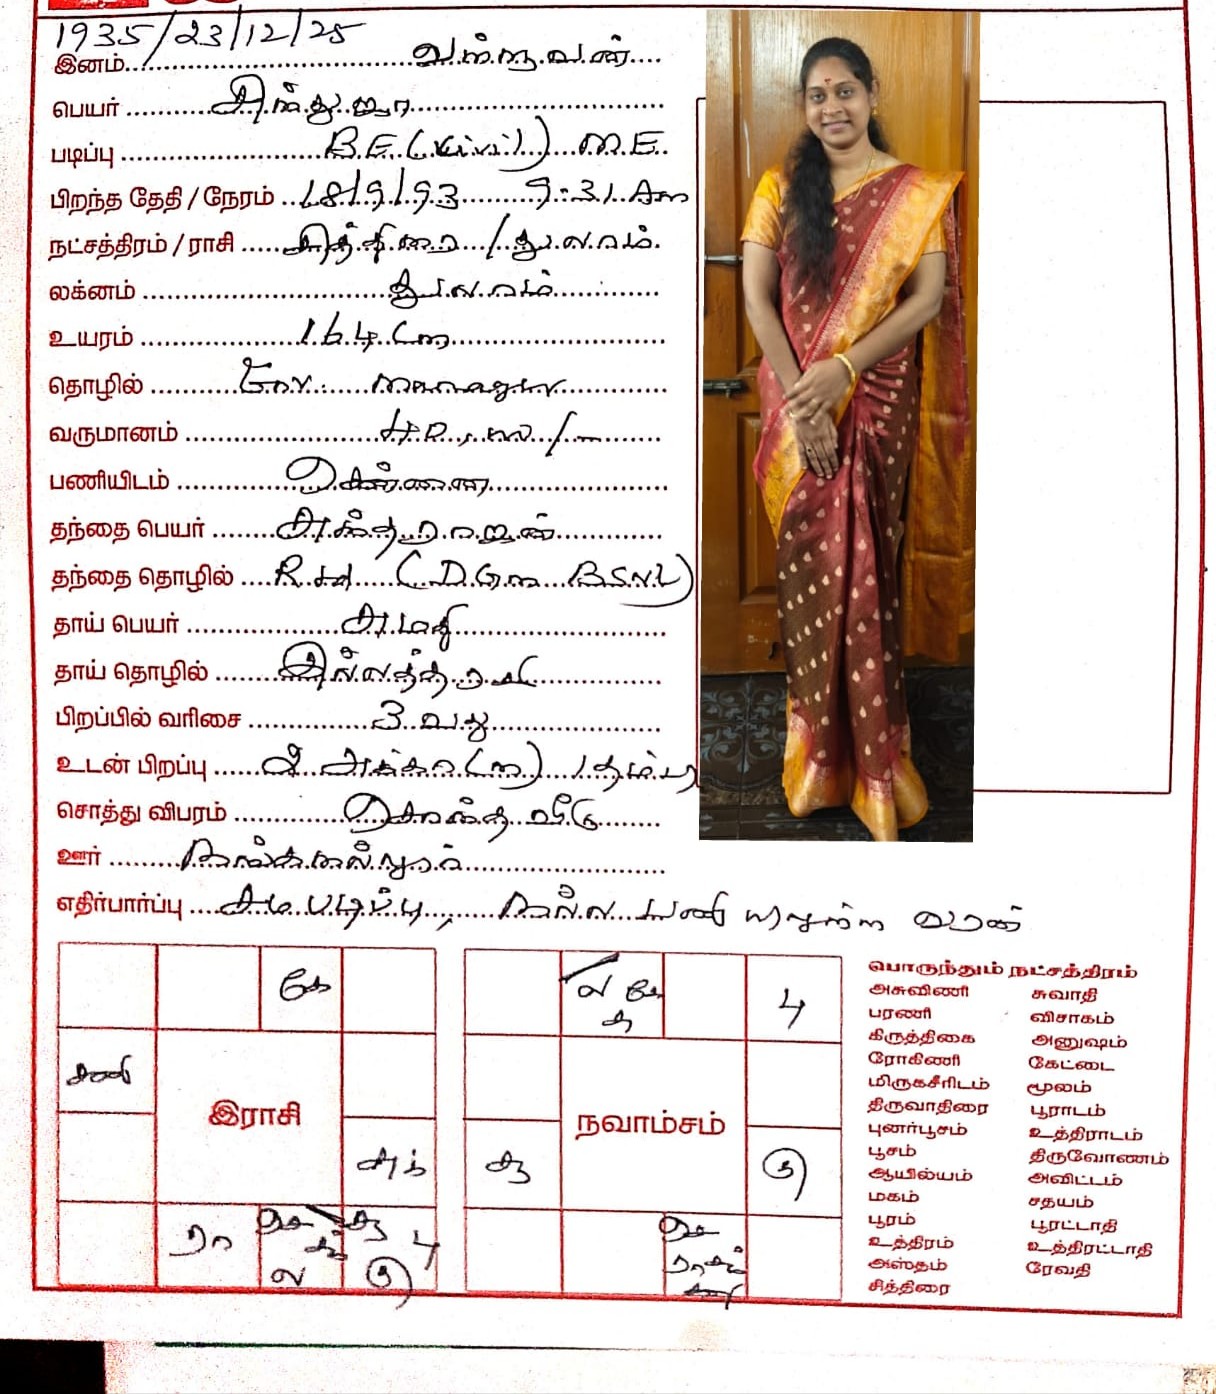 1935/23/12/25
இனம் வள்ளுவன்
பெயர் சிந்துஜா
படிப்பு B.E. (Civil) M.E.
பிறந்த தேதி / நேரம் 18/9/93 9-31 Am
நட்சத்திரம் / ராசி சித்திரை / துலாம்
லக்னம் துலாம்
உயரம் 164 Cm
தொழில்
வருமானம்
பணியிடம் சென்னை
தந்தை பெயர்
தந்தை தொழில் Rtd (D.G.m BSNL)
தாய் பெயர்
தாய் தொழில் இல்லத்தரசி
பிறப்பில் வரிசை 3 வது
உடன் பிறப்பு 2 அக்கா (m) 1 தம்பி
சொத்து விபரம் சொந்த வீடு
ஊர் நங்கநல்லூர்
எதிர்பார்ப்பு சம படிப்பு, நல்ல பணி யிலுள்ள வரன்
கே
சனி
இராசி
சுக்
ரா செ சந் ல சூ பு குரு
ல கே சு பு
நவாம்சம்
சூ குரு
செ ரா சந் சனி
பொருந்தும் நட்சத்திரம்
அசுவிணி சுவாதி
பரணி விசாகம்
கிருத்திகை அனுஷம்
ரோகிணி கேட்டை
மிருகசீரிடம் மூலம்
திருவாதிரை பூராடம்
புனர்பூசம் உத்திராடம்
பூசம் திருவோணம்
ஆயில்யம் அவிட்டம்
மகம் சதயம்
பூரம் பூரட்டாதி
உத்திரம் உத்திரட்டாதி
அஸ்தம் ரேவதி
சித்திரை